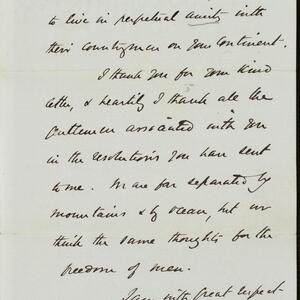 to live in perpetual amity with
their countrymen on your Continent.
I thank you for your kind
letter, & heartily I thank all the
Gentlemen associated with you
in the resolutions you have sent
to me. We are far separated by
mountains & by ocean, but we
think the same thoughts for the
freedom of men.
I am with great respect